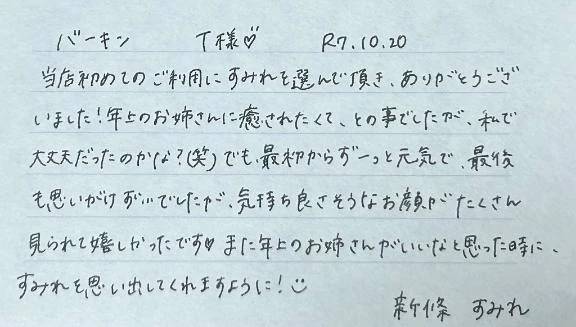 バーキン T様♡ R7.10.20
当店初めてのご利用にすみれを選んで頂き、ありがとうござ
いました!年上のお姉さんに癒されたくて、との事でしたが、私で
大丈夫だったのかな?(笑)でも、最初からずーっと元気で、最後
も思いがけずいでしたが、気持ち良さそうなお顔がたくさん
見られて嬉しかったです♡また年上のお姉さんがいいなと思った時に、
すみれを思い出してくれますように!☺
新條 すみれ